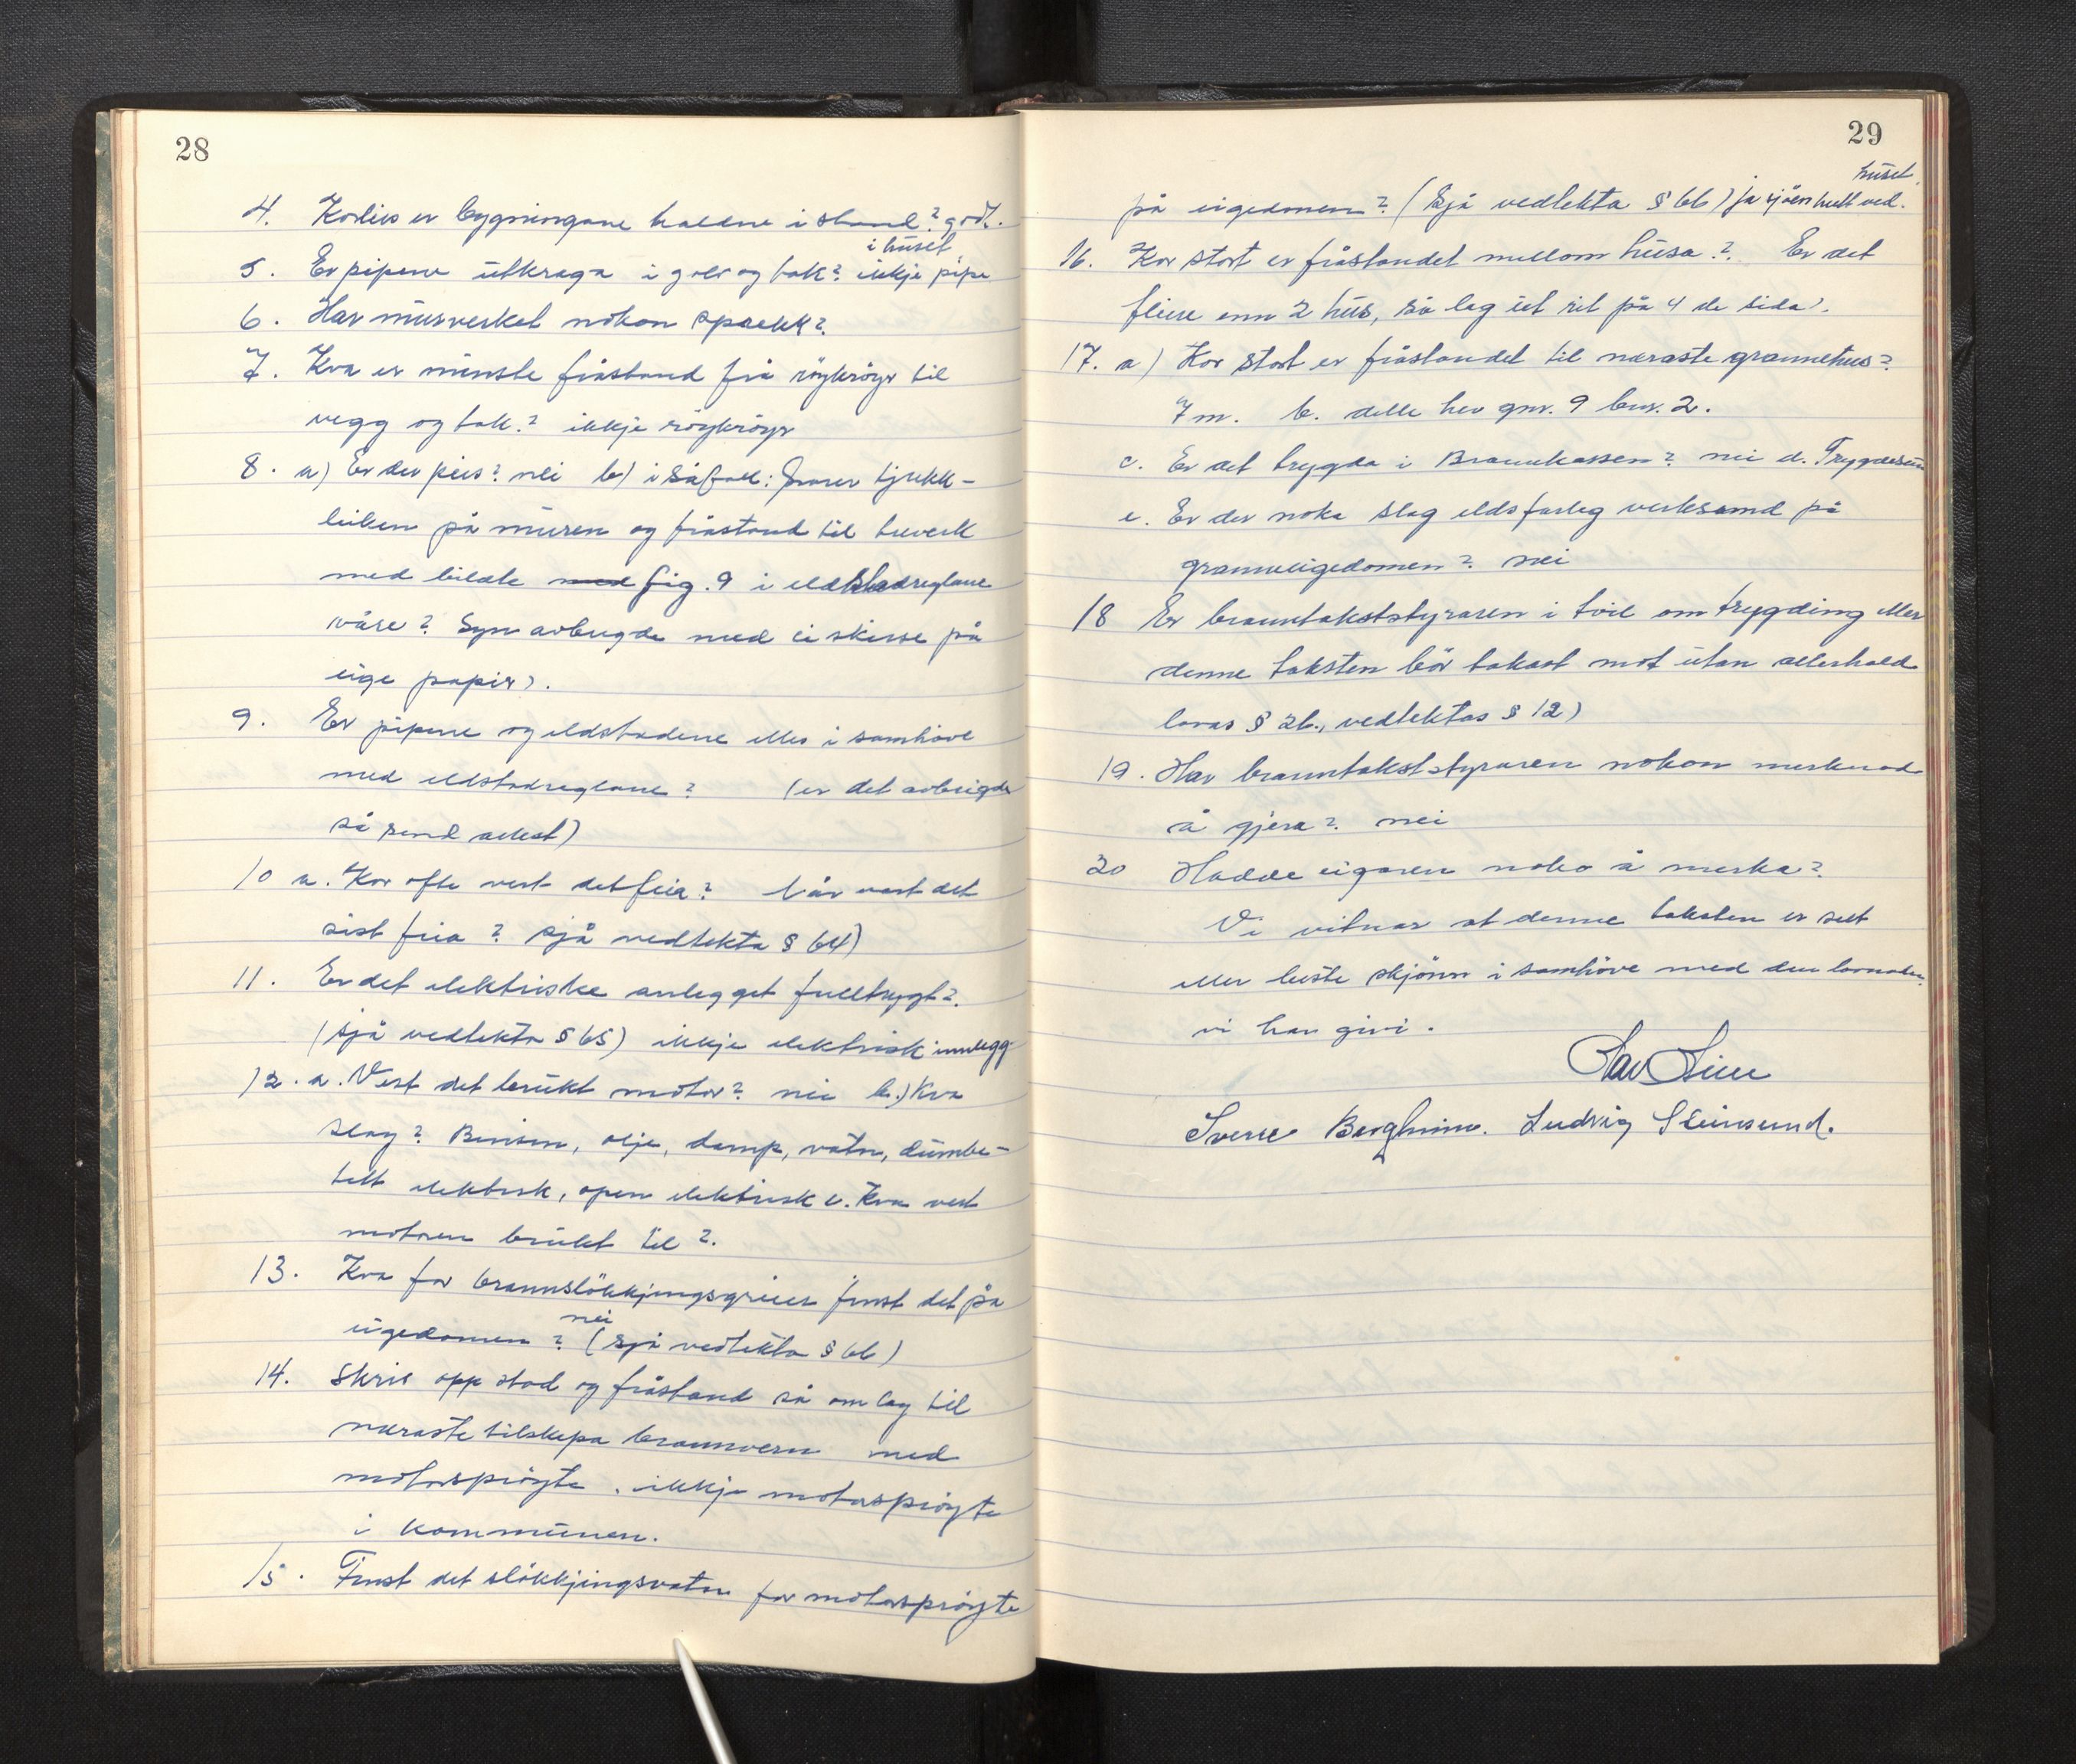 28
4. Korleis er bygningane haldne i stand? godt.
5. Er pipene utkraga i golv og tak? ikkje pipe i huset
6. Har murverket nokon sprekk?
7. Kva er minste fråstand frå röykröyr til
vegg og tak? ikkje röykröyr
8. a) Er der peis? nei b) i såfall: svarer tjukk-
leiken på muren og fråstand til treverk
med bilete med fig. 9 i eldstadreglane
våre? Syn avbrigde med ei skisse på
eige papir).
9. Er pipene og eldstadene elles i samhöve
med eldstadreglane? (er det avbrigde
så send attest)
10 a. Kor ofte vert det feia? Når vart det
sist feia? sjå vedtekta § 64)
11. Er det elektriske anlegget fulltrygt?
(sjå vedtekta § 65) ikkje elektrisk innlegg
12. a. Vert det brukt motor? nei b.) Kva
slag? Bensin, olje, damp, vatn, dumbe-
tett elektrisk, open elektrisk c. Kva vert
motoren brukt til?
13. Kva for brannslökkjingsgreier finst det på
eigedomen? nei (sjå vedtekta § 66)
14. Skriv opp stad og fråstand så om lag til
næraste tilskipa brannvern med
motorspröyte. ikkje motorspröyte
i kommunen.
15. Finst det slökkjingsvatn for motorspröyte
29
på eigedomen? (Sjå vedtekta § 66) ja sjöen tett ved. huset.
16. Kor stort er fråstandet mellom husa? Er det
fleire enn 2 hus, så lag eit rit på 4 de sida).
17. a) Kor stort er fråstandet til næraste grannehus?
7 m. b. dette hev gnr. 9 bnr. 2.
c. Er det trygda i Brannkassen? nei d. Trygdesum
e. Er der noka slag eldsfarleg verksemd på
granneeigedomen? nei
18 Er branntakststyraren i tvil om trygding etter
denne taksten bör takast mot utan atterhald
lovas § 26., vedtektas § 12)
19. Har branntakststyraren nokon merknad
å gjera? nei
20 Hadde eigaren noko å merka?
Vi vitnar at denne taksten er sett
etter beste skjönn i samhöve med den lovnaden
vi har givi.
Sverre Bergheim. Ludvig Steinsund.